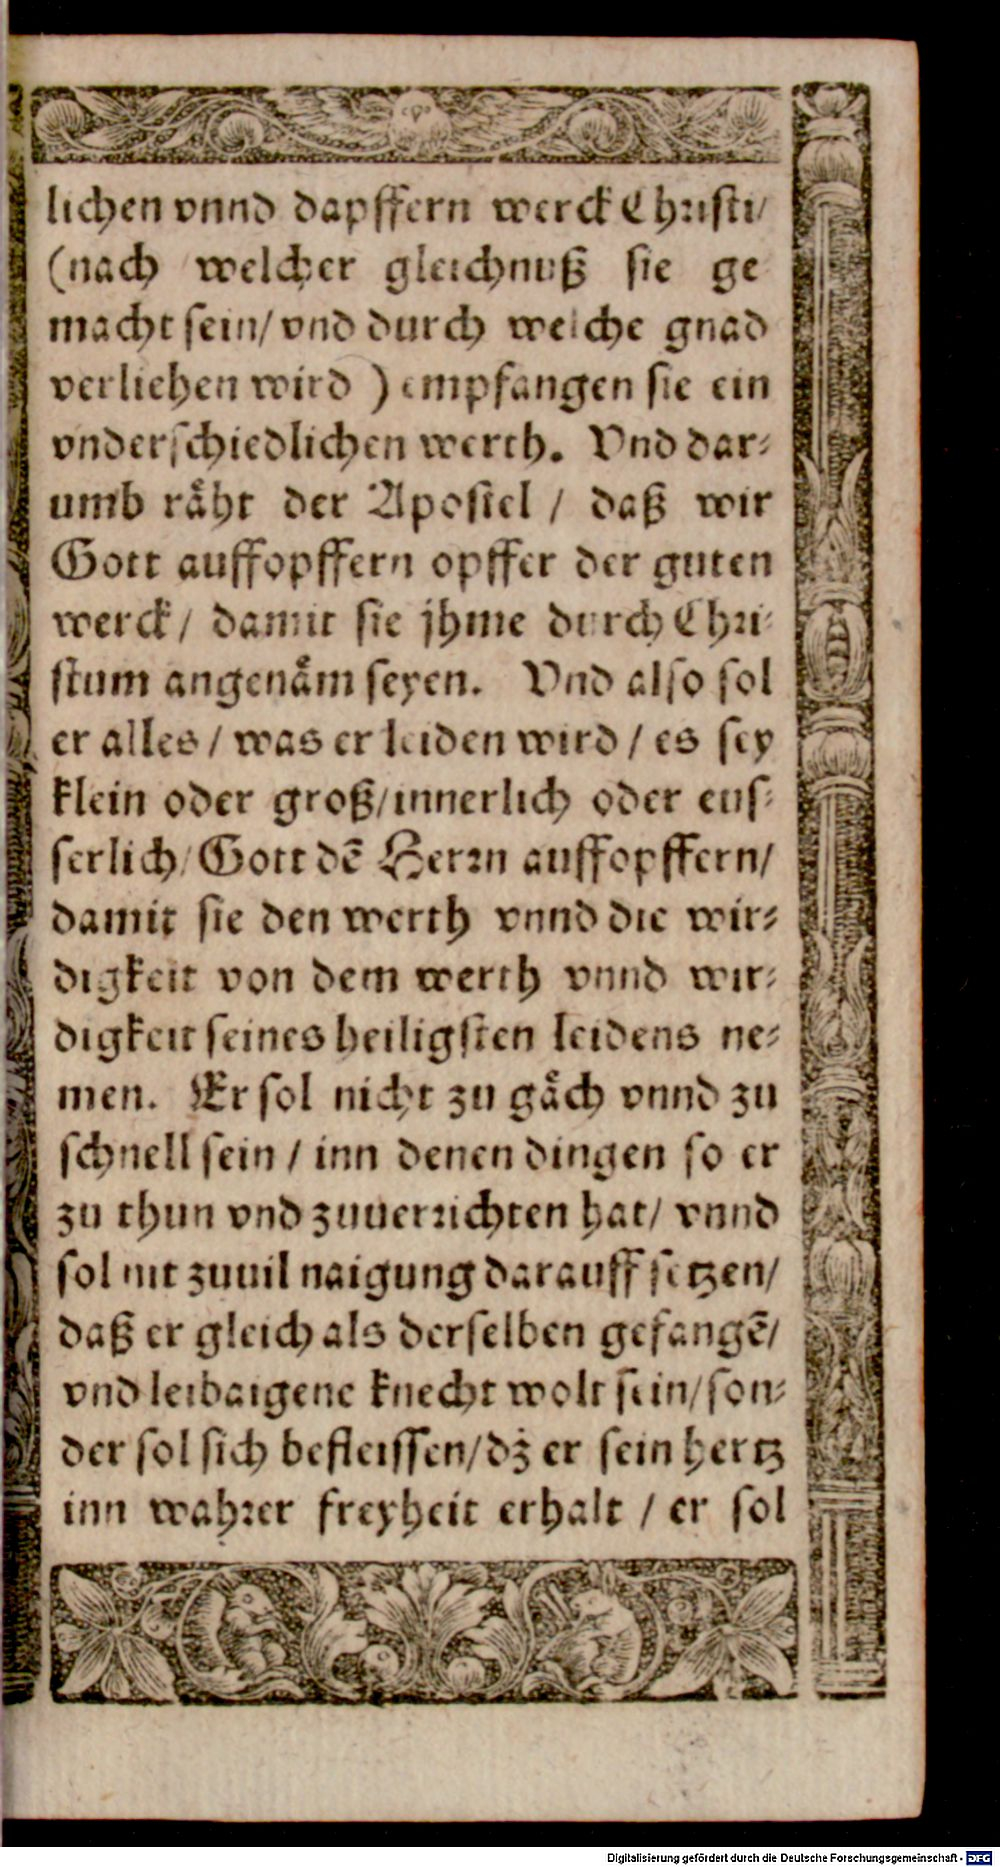 lichen vnnd dapffern werck Christi/
(nach welcher gleichnuß sie ge
macht sein/ vnd durch welche gnad
verliehen wird ) empfangen sie ein
vnderschiedlichen werth. Vnd dar⸗
umb räht der Apostel / daß wir
Gott auffopffern opffer der guten
werck / damit sie jhme durch Chri⸗
stum angenäm seyen. Vnd also sol
er alles / was er leiden wird / es sey
klein oder groß/ innerlich oder eus⸗
serlich/ Gott dē Herrn auffopffern/
damit sie den werth vnnd die wir⸗
digkeit von dem werth vnnd wir⸗
digkeit seines heiligsten leidens ne⸗
men. Er sol nicht zu gäch vnnd zu
schnell sein / inn denen dingen so er
zu thun vnd zuuerrichten hat/ vnnd
sol nit zuuil naigung darauff setzen/
daß er gleich als derselben gefangē/
vnd leibaigene knecht wolt sein/ son⸗
der sol sich befleissen/ dz̄ er sein hertz
inn wahrer freyheit erhalt / er sol
Digitalisierung gefördert durch die Deutsche Forschungsgemeinschaft - DFG